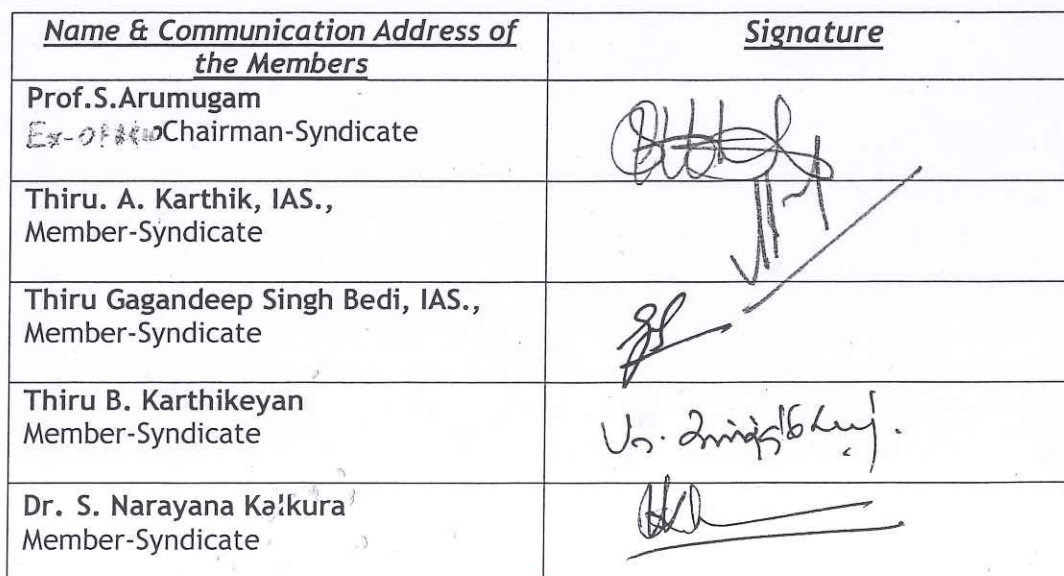 Name & Communication Address of Signature
the Members
Prof.S.Arumugam
Ex-officio Chairman-Syndicate
Thiru. A. Karthik, IAS.,
Member-Syndicate
Thiru Gagandeep Singh Bedi, IAS.,
Member-Syndicate
Thiru B. Karthikeyan
Member-Syndicate
Dr. S. Narayana Kalkura
Member-Syndicate